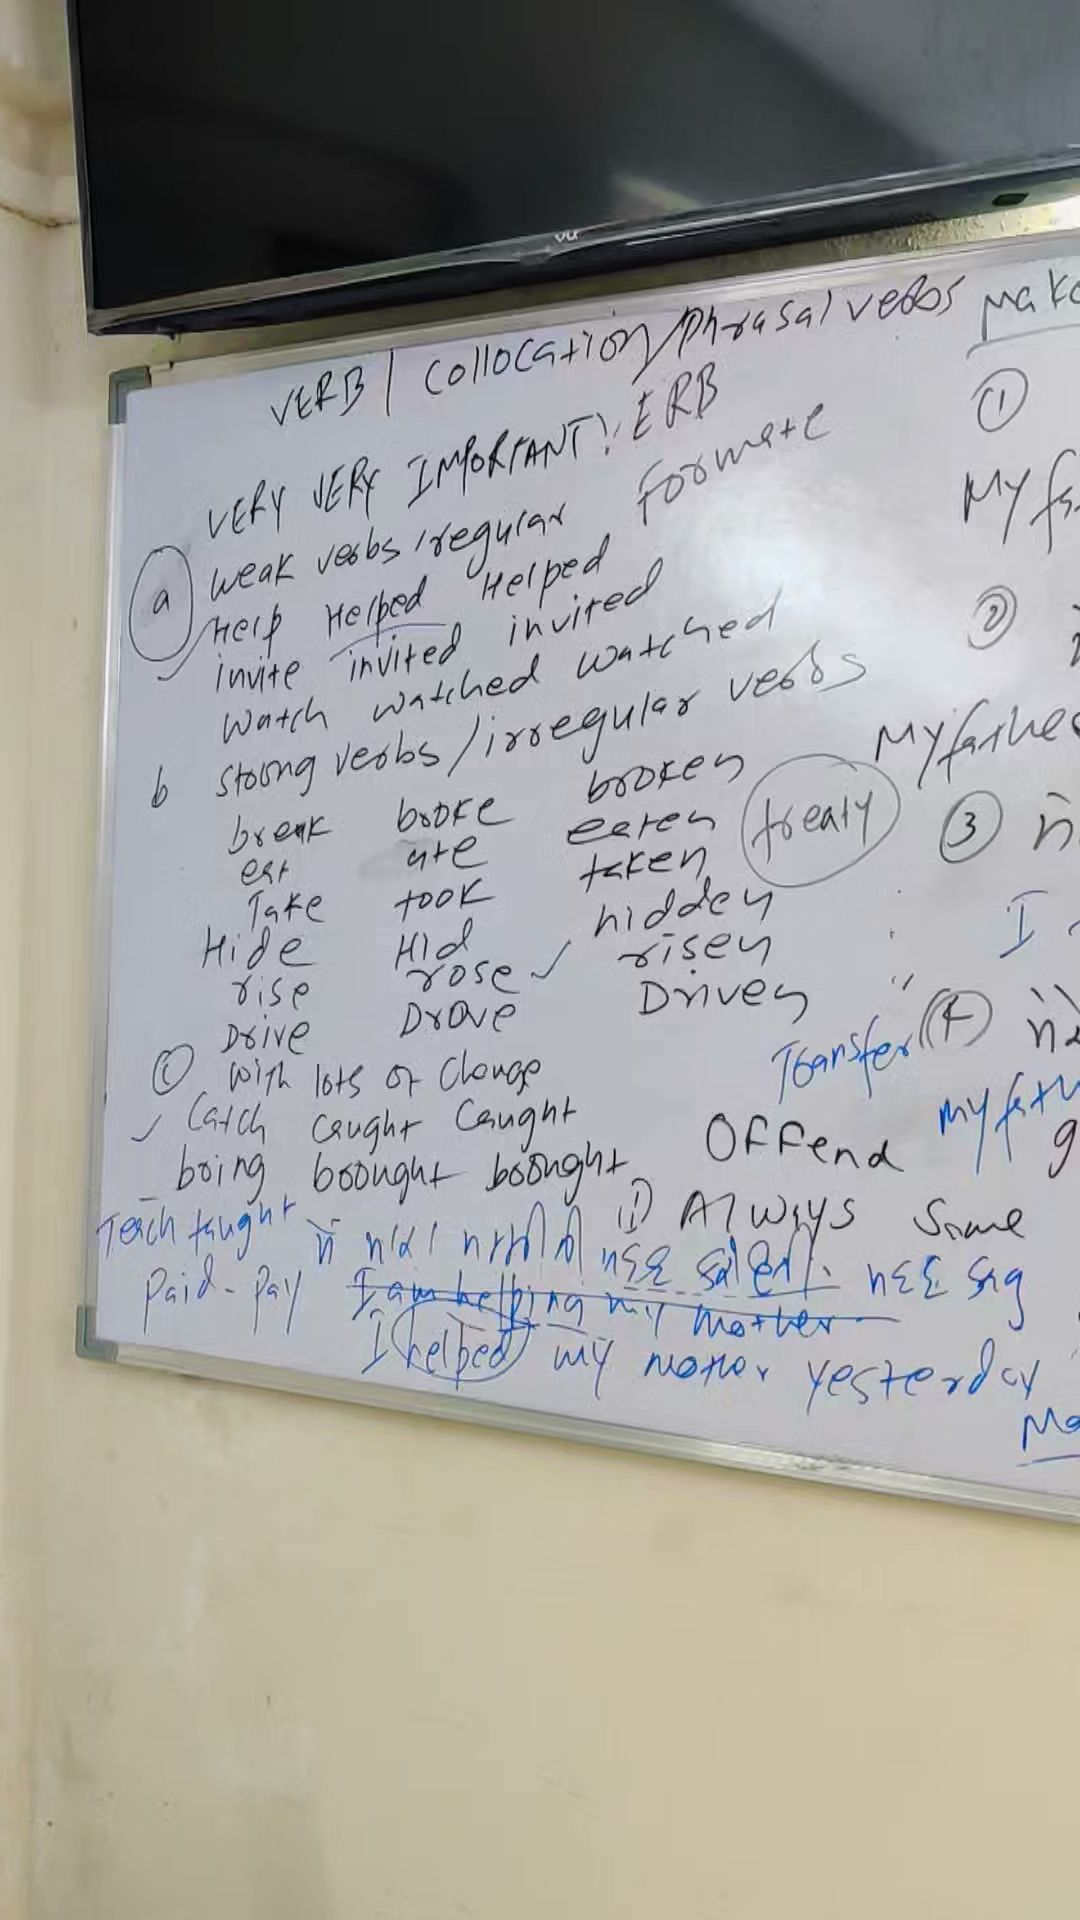 VU
VERB / Collocation/Phrasal verbs Make
VERY VERY IMPORTANT VERB
a weak verbs/regular Formate
Help Helped Helped
invite invited invited
Watch watched watched
b strong verbs/irregular verbs
break broke broken
eat ate eaten
Take took taken
Hide Hid hidden
rise rose risen
Drive Drove Driven
C With lots of Change
Catch caught Caught
bring brought brought
Teach taught
Paid - Pay
I am helping my mother
I helped my mother yesterday
treaty
Transfer
Offend
1) Always Same
①
My
②
My father
③
I
④
My